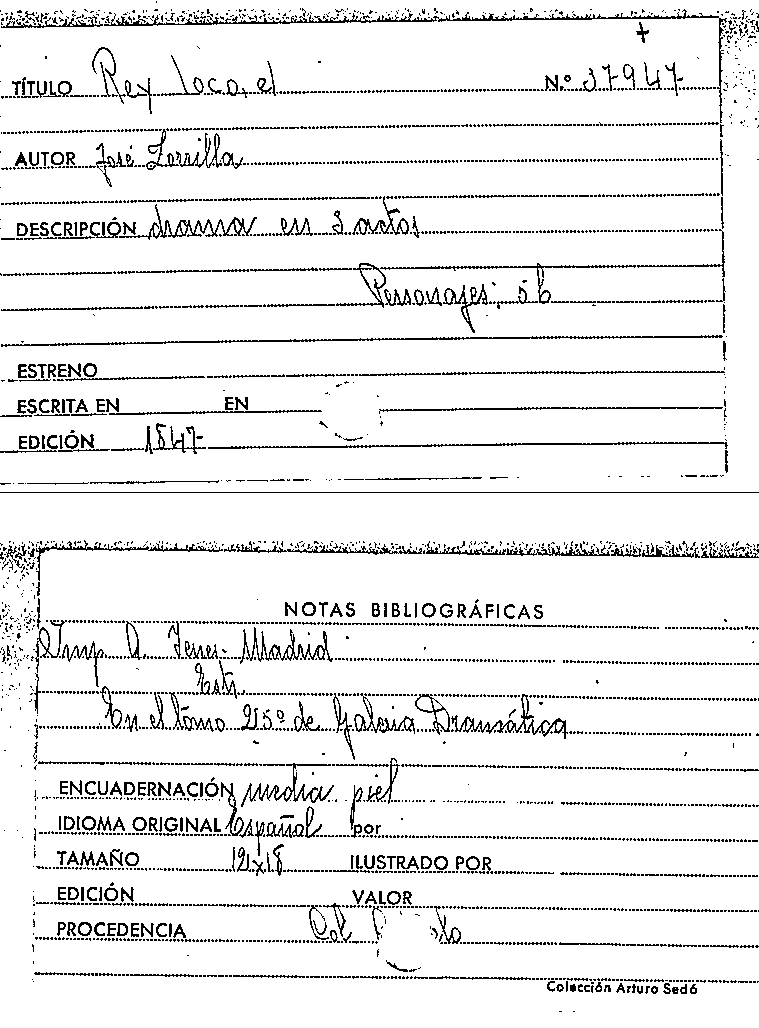 +
TÍTULO Rey loco, el N.º 37947
AUTOR José Zorrilla
DESCRIPCIÓN drama en 3 actos
Personajes: 56
ESTRENO
ESCRITA EN EN
EDICIÓN 1847
NOTAS BIBLIOGRÁFICAS
Imp. A. Madrid
En el tomo 215º de Galeria Dramática
ENCUADERNACIÓN media piel
IDIOMA ORIGINAL Español por
TAMAÑO 12x18 ILUSTRADO POR
EDICIÓN VALOR
PROCEDENCIA Col
Colección Arturo Sedó